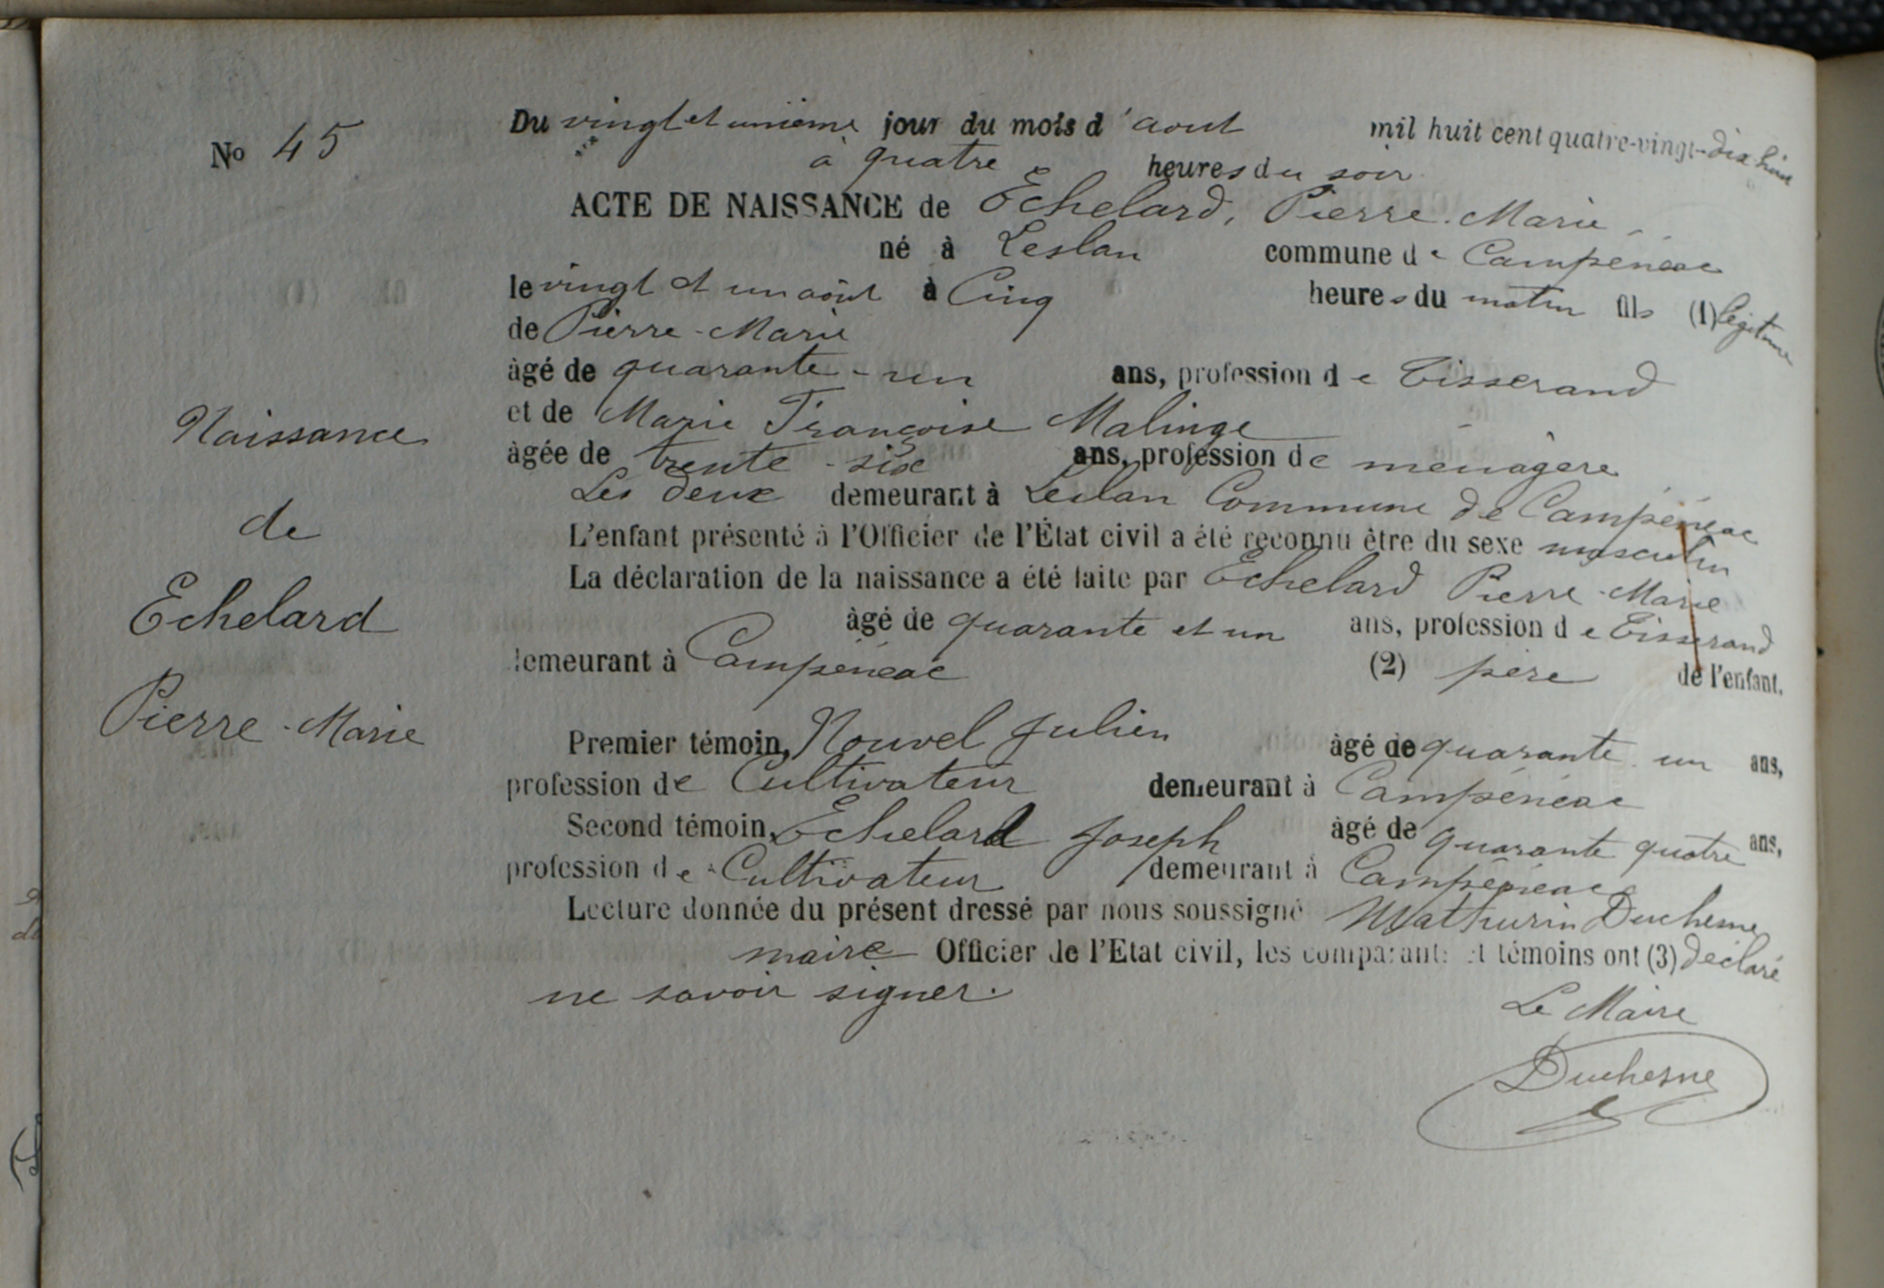 No 45
Du vingt et unième jour du mois d'aout mil huit cent quatre-vingt-dix huit
à quatre heures du soir
ACTE DE NAISSANCE de Echelard, Pierre-Marie
né à Leslan commune de Campénéac
le vingt et un août à Cinq heures du matin fils (1) légitime
de Pierre-Marie
âgé de quarante-un ans, profession de Tisserand
et de Marie Françoise Malinge
âgée de trente-six ans, profession de ménagère
Les deux demeurant à Leslan Commune de Campénéac
L'enfant présenté à l'Officier de l'État civil a été reconnu être du sexe masculin
La déclaration de la naissance a été faite par Echelard Pierre-Marie
âgé de quarante et un ans, profession de Tisserand
demeurant à Campénéac (2) père de l'enfant.
Premier témoin, Nouvel Julien âgé de quarante un ans,
profession de Cultivateur demeurant à Campénéac
Second témoin, Echelard Joseph âgé de quarante quatre ans,
profession de Cultivateur demeurant à Campénéac
Lecture donnée du présent dressé par nous soussigné Mathurin Duchesne
maire Officier de l'Etat civil, les comparants et témoins ont (3) déclaré
ne savoir signer.
Le Maire
Duchesne
Naissance
de
Echelard
Pierre-Marie